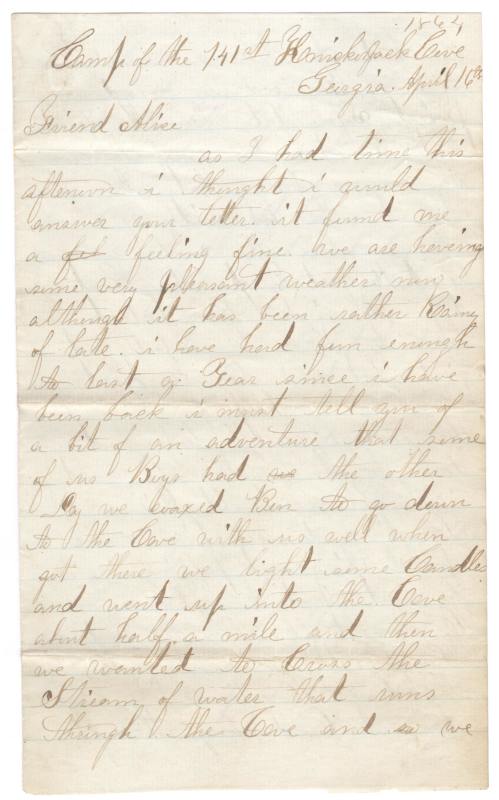 1864
Camp of the 141st Knickerjack Cove
Georgia. April 16th
Friend Alice
as I had time this
afternoon i thought i would
answer your letter. it found me
a feeling fine. we are haveing
some very pleasant weather now
although it has been rather Rainy
of late. i have had fun enough
to last a Year since i have
been back i must tell you of
a bit of an adventure that some
of us Boys had we the other
Day we coaxed Ben to go down
to the Cove with us well when
got there we light some Candles
and went up into the Cove
about half a mile and then
we wanted to Cross the
Stream of water that runs
through the Cove and so we